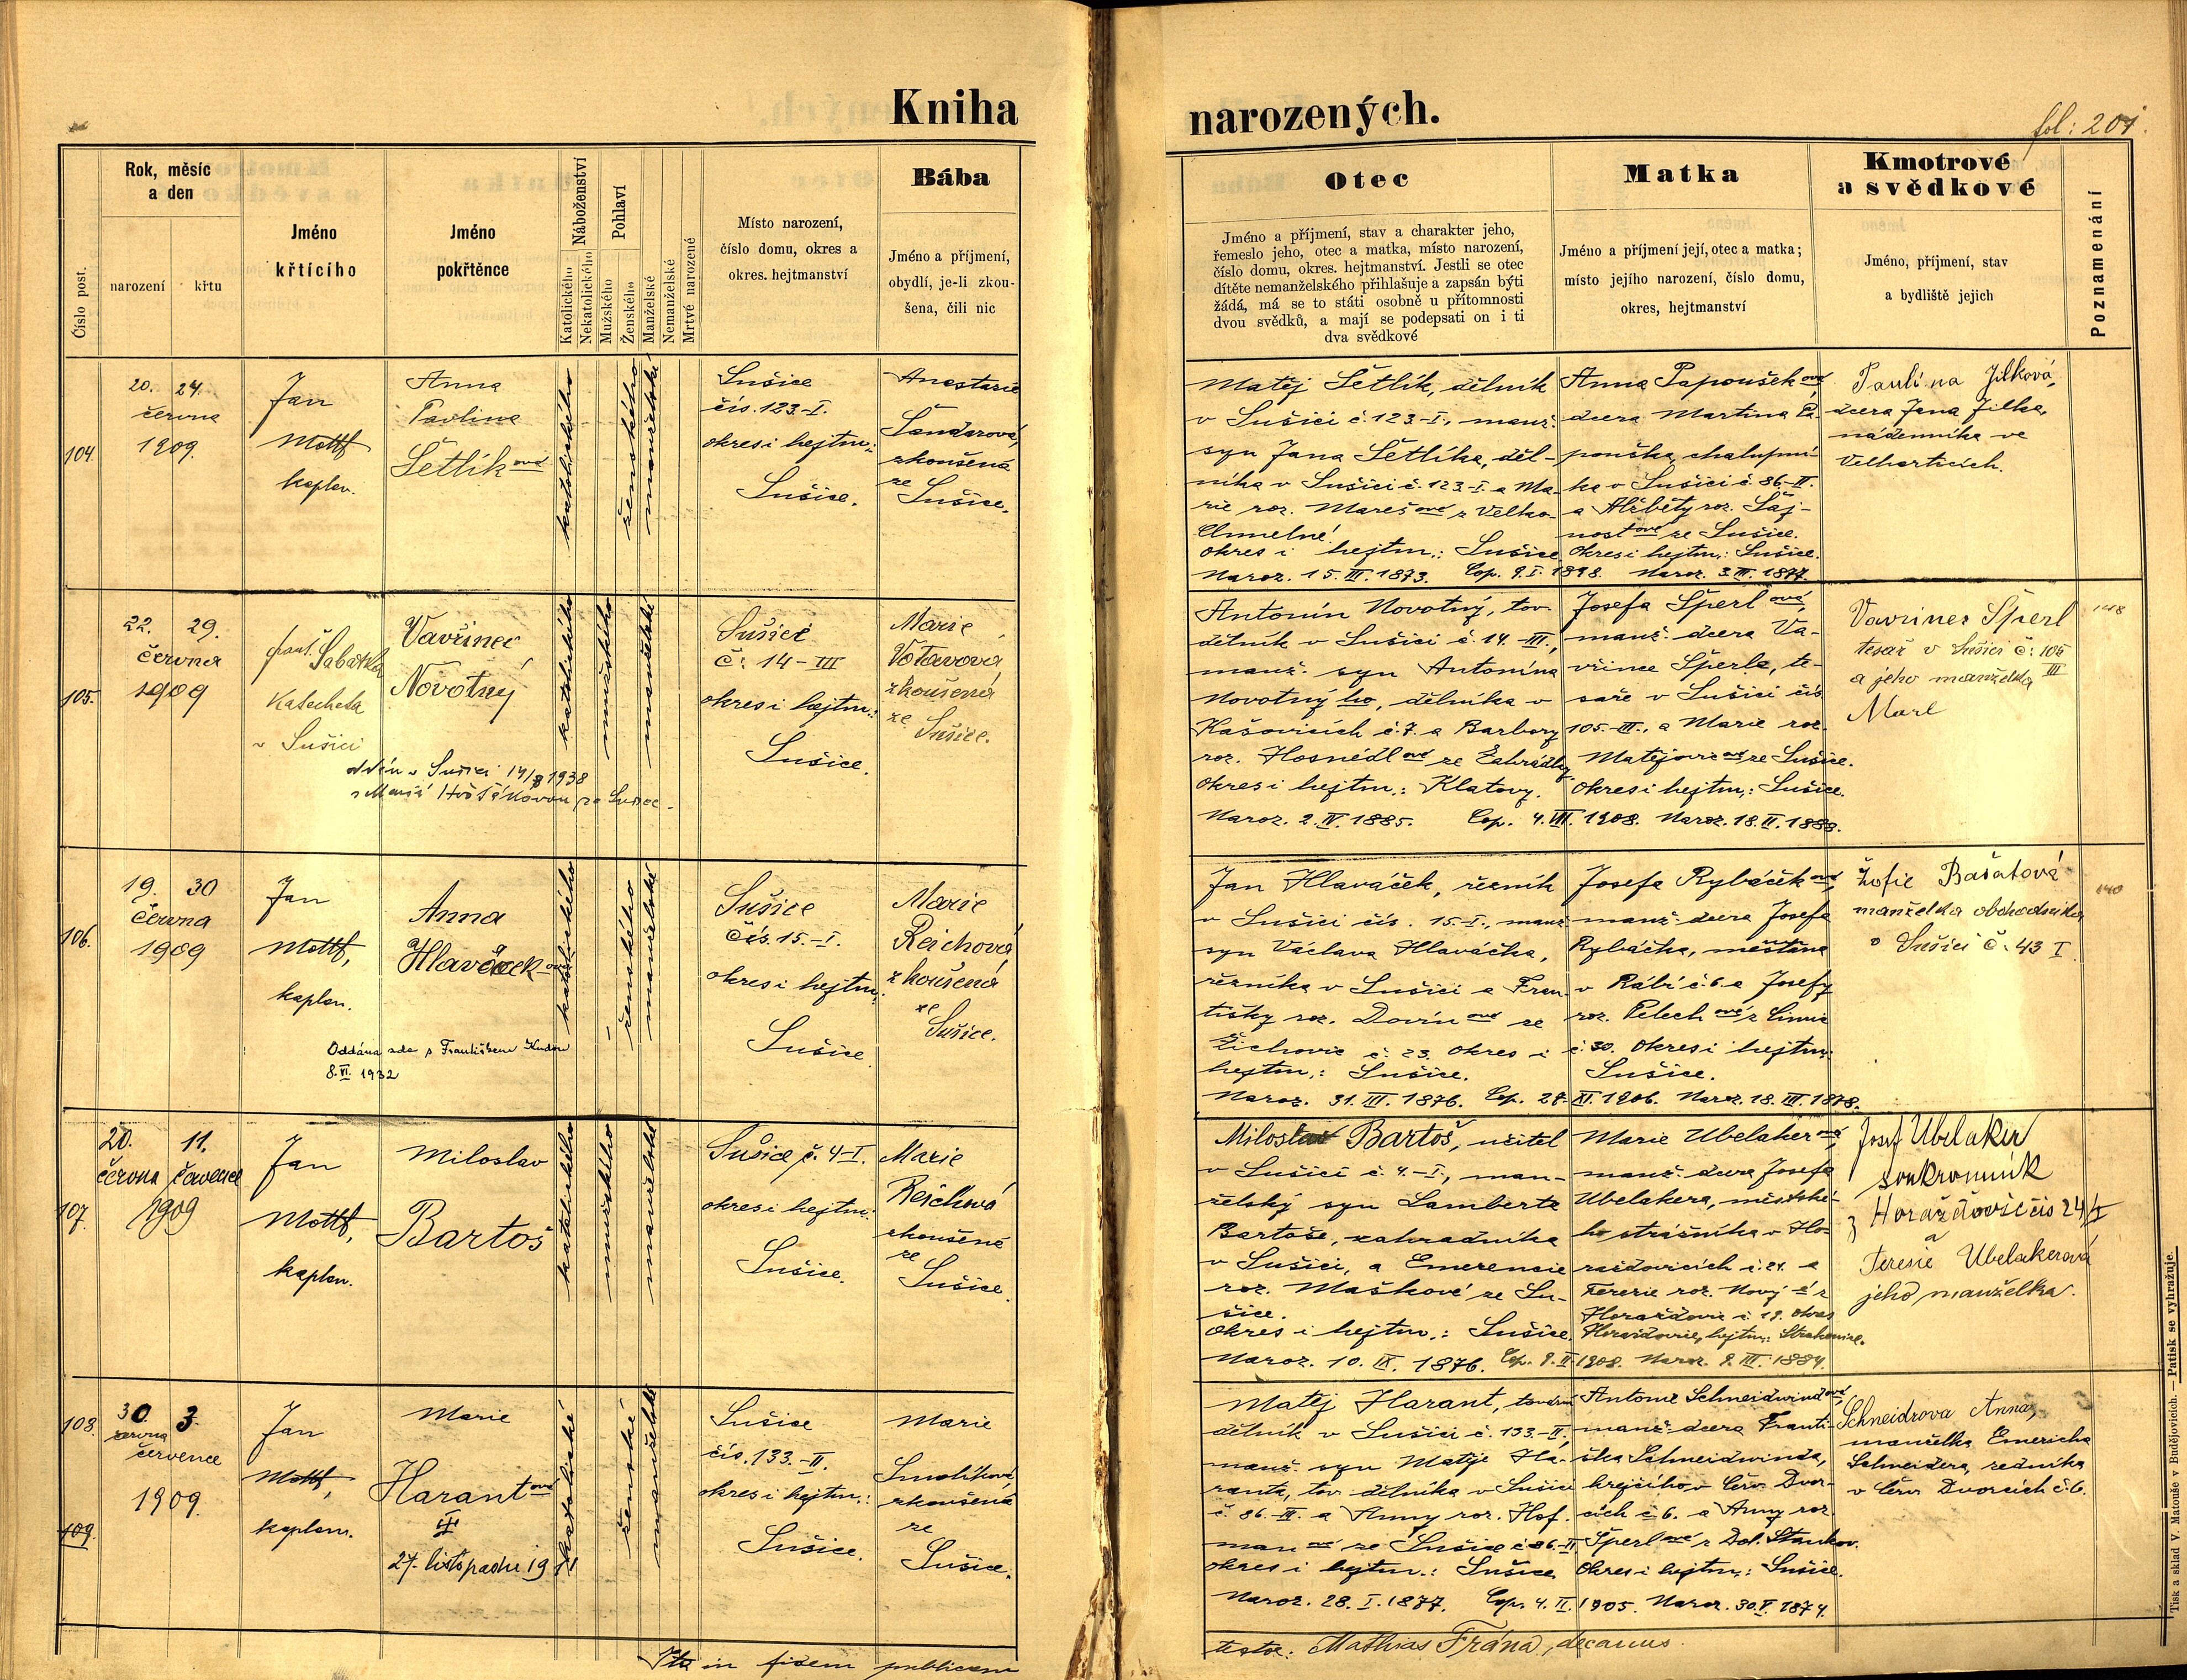 Kniha
narozených.
fol: 201.
Číslo post.
Rok, měsíc
a den
narození
křtu
Jméno
křtícího
Jméno
pokřtěnce
Náboženství
Katolického
Nekatolického
Pohlaví
Mužského
Ženského
Manželské
Nemanželské
Mrtvě narozené
Místo narození,
číslo domu, okres a
okres. hejtmanství
Bába
Jméno a příjmení,
obydlí, je-li zkou-
šena, čili nic
Otec
Jméno a příjmení, stav a charakter jeho,
řemeslo jeho, otec a matka, místo narození,
číslo domu, okres. hejtmanství. Jestli se otec
dítěte nemanželského přihlašuje a zapsán býti
žádá, má se to státi osobně u přítomnosti
dvou svědků, a mají se podepsati on i ti
dva svědkové
Matka
Jméno a příjmení její, otec a matka;
místo jejího narození, číslo domu,
okres, hejtmanství
Kmotrové
a svědkové
Jméno, příjmení, stav
a bydliště jejich
Poznamenání
104.
20. 24.
června
1909.
Jan
Mottl
kaplan.
Anna
Pavlina
Šetlíková
katolického
ženského
manželské
Sušice
čís. 123-I.
okres i hejtm.:
Sušice.
Anastasie
Šandarová,
zkoušená
ze
Sušice.
Matěj Šetlík, dělník
v Sušici č. 123-I., manž.
syn Jana Šetlíka, děl-
níka v Sušici č. 123-I. a Ma-
rie roz. Marešové z Velko-
Chmelné.
okres i hejtm.: Sušice
Naroz. 15. III. 1873. Cop. 9. I. 1898.
Anna Papoušková
dcera Martina Pa-
pouška, chalupní-
ka v Sušici č. 86-II.
a Alžběty roz. Šaj-
nostové ze Sušice.
Okres i hejtm.: Sušice.
Naroz. 3. III. 1877.
Paulína Jílková,
dcera Jana Jílka,
nádenníka ve
Velharticích.
105.
22. 29.
června
1909
frant. Sabatka
Katecheta
v Sušici
Vavřinec
Novotný
katolického
mužského
manželské
oddán v Sušici 1938
s Marií Hošťákovou ze Sušice.
Sušice
č: 14-III
okres i hejtm.:
Sušice.
Marie
Votavová
zkoušená
ze
Sušice.
Antonín Novotný, tov.
dělník v Sušici č. 14-III.,
manž. syn Antonína
Novotného, dělníka v
Kašovicích č. 7. a Barbory
roz. Hosnédlové ze Zahrádky
Okres i hejtm.: Klatovy.
Naroz. 2. IV. 1885. Cop. 4. VII. 1908.
Josefa Šperlová,
manž. dcera Va-
vřince Šperla, te-
saře v Sušici čís.
105-III., a Marie roz.
Matějovicové ze Sušice.
Okres i hejtm.: Sušice.
Naroz. 18. II. 1888.
Vavřinec Šperl
tesař v Sušici č: 105
III
a jeho manželka
148
106.
19. 30
června
1909
Jan
Mottl,
kaplan.
Anna
Hlaváčková
katolického
ženského
manželské
Oddána zde s Františkem
8. VI. 1932
Sušice
čís. 15.-I.
okres i hejtm.:
Sušice
Marie
Reichová
zkoušená
ze
Sušice.
Jan Hlaváček, řezník
v Sušici čís. 15-I., manž.
syn Václava Hlaváčka,
řezníka v Sušici a Fran-
tišky roz. Dovínové ze
Žichovic č. 23. Okres i
hejtm.: Sušice.
Naroz. 31. III. 1876. Cop. 27. XI. 1906.
Josefa Rybáčková,
manž. dcera Josefa
Rybáčka, měštěna
v Rábí č. 6. a Josefy
roz. Pelechové z
č. 30. Okres i hejtm.:
Sušice.
Naroz. 18. III. 1878.
Žofie Bašatová
manželka obchodníka
v Sušici č. 43 I.
140
107.
20. 11.
června července
1909
Jan
Mottl,
kaplan.
Miloslav
Bartoš
katolického
mužského
manželské
Sušice č. 4-I.
okres i hejtm.:
Sušice.
Marie
Reichová
zkoušená
ze
Sušice.
Miloslav Bartoš, učitel
v Sušici č. 4.-I., man-
želský syn Lamberta
Bartoše, zahradníka
v Sušici, a Emerencie
roz. Maškové ze Su-
šice.
Okres i hejtm.: Sušice.
Naroz. 10. IX. 1876. Cop. 9. II. 1908.
Marie Ubelakerová,
manž. dcera Josefa
Ubelakera, městské-
ho strážníka v Ho-
ražďovicích č. 24. a
Terezie roz. Nový-é z
Horažďovic č. 19. okres
Horažďovice, hejtm.: Strakonice.
Naroz. 9. III. 1884.
Josef Ubelaker
soukromník
z Horažďovic čis 24/I
a
Teresie Ubelakerová
jeho manželka.
108.
109.
30. 3.
června
července
1909.
Jan
Mottl,
kaplan.
Marie
Harantová
27. listopadu 1911
katolické
ženské
manželské
Sušice
čís. 133.-II.
okres i hejtm.:
Sušice.
Marie
Smolíková,
zkoušená
ze
Sušice.
Matěj Harant, tovární
dělník v Sušici č. 133-II,
manž. syn Matěje Ha-
ranta, tov. dělníka v Sušici
č. 86.-III. a Anny roz. Hof-
manové ze Sušice č. 86.-II.
okres i hejtm.: Sušice
Naroz. 28. I. 1877. Cop. 4. II. 1905.
Antonie Schneidwindová,
manž. dcera Franti-
ška Schneidwinda,
krejčího v Červ. Dvor-
cích č. 6. a Anny roz.
Šperlové z Dol. Staňkov.
Okres i hejtm.: Sušice.
Naroz. 30. V. 1874.
Schneidrova Anna,
manželka Emericha
Schneidera, rolníka
v Červ. Dvorcích č. 6.
Ita in fidem publicam
testor: Mathias Frána, decanus.
Tisk a sklad V. Matouše v Budějovicích. — Patisk se vyhražuje.